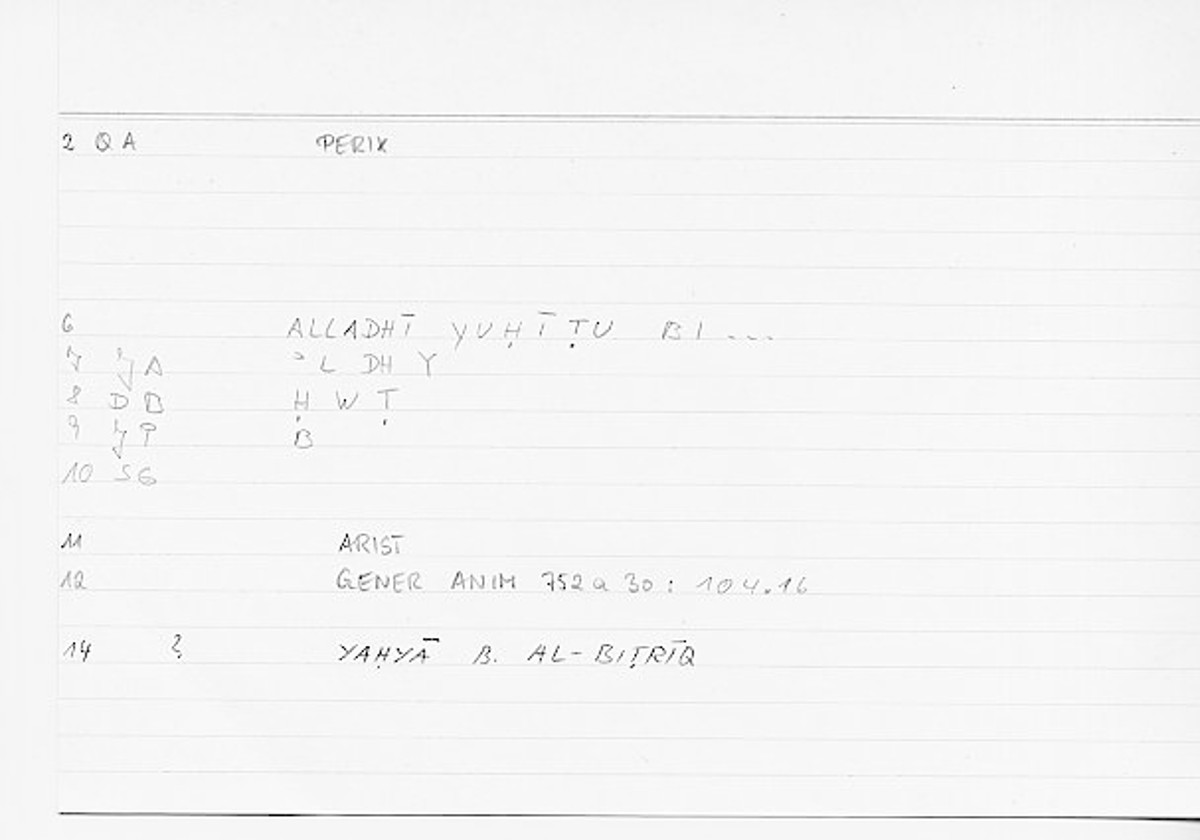 2 Q A PERIX
6 ALLADHĪ YUḤĪṬU BI ...
7 A ʾ L DH Y
8 D B Ḥ W Ṭ
9 B
10 SG
11 ARIST
12 GENER ANIM 752 a 30 : 104.16
14 ? YAḤYĀ B. AL-BIṬRĪQ